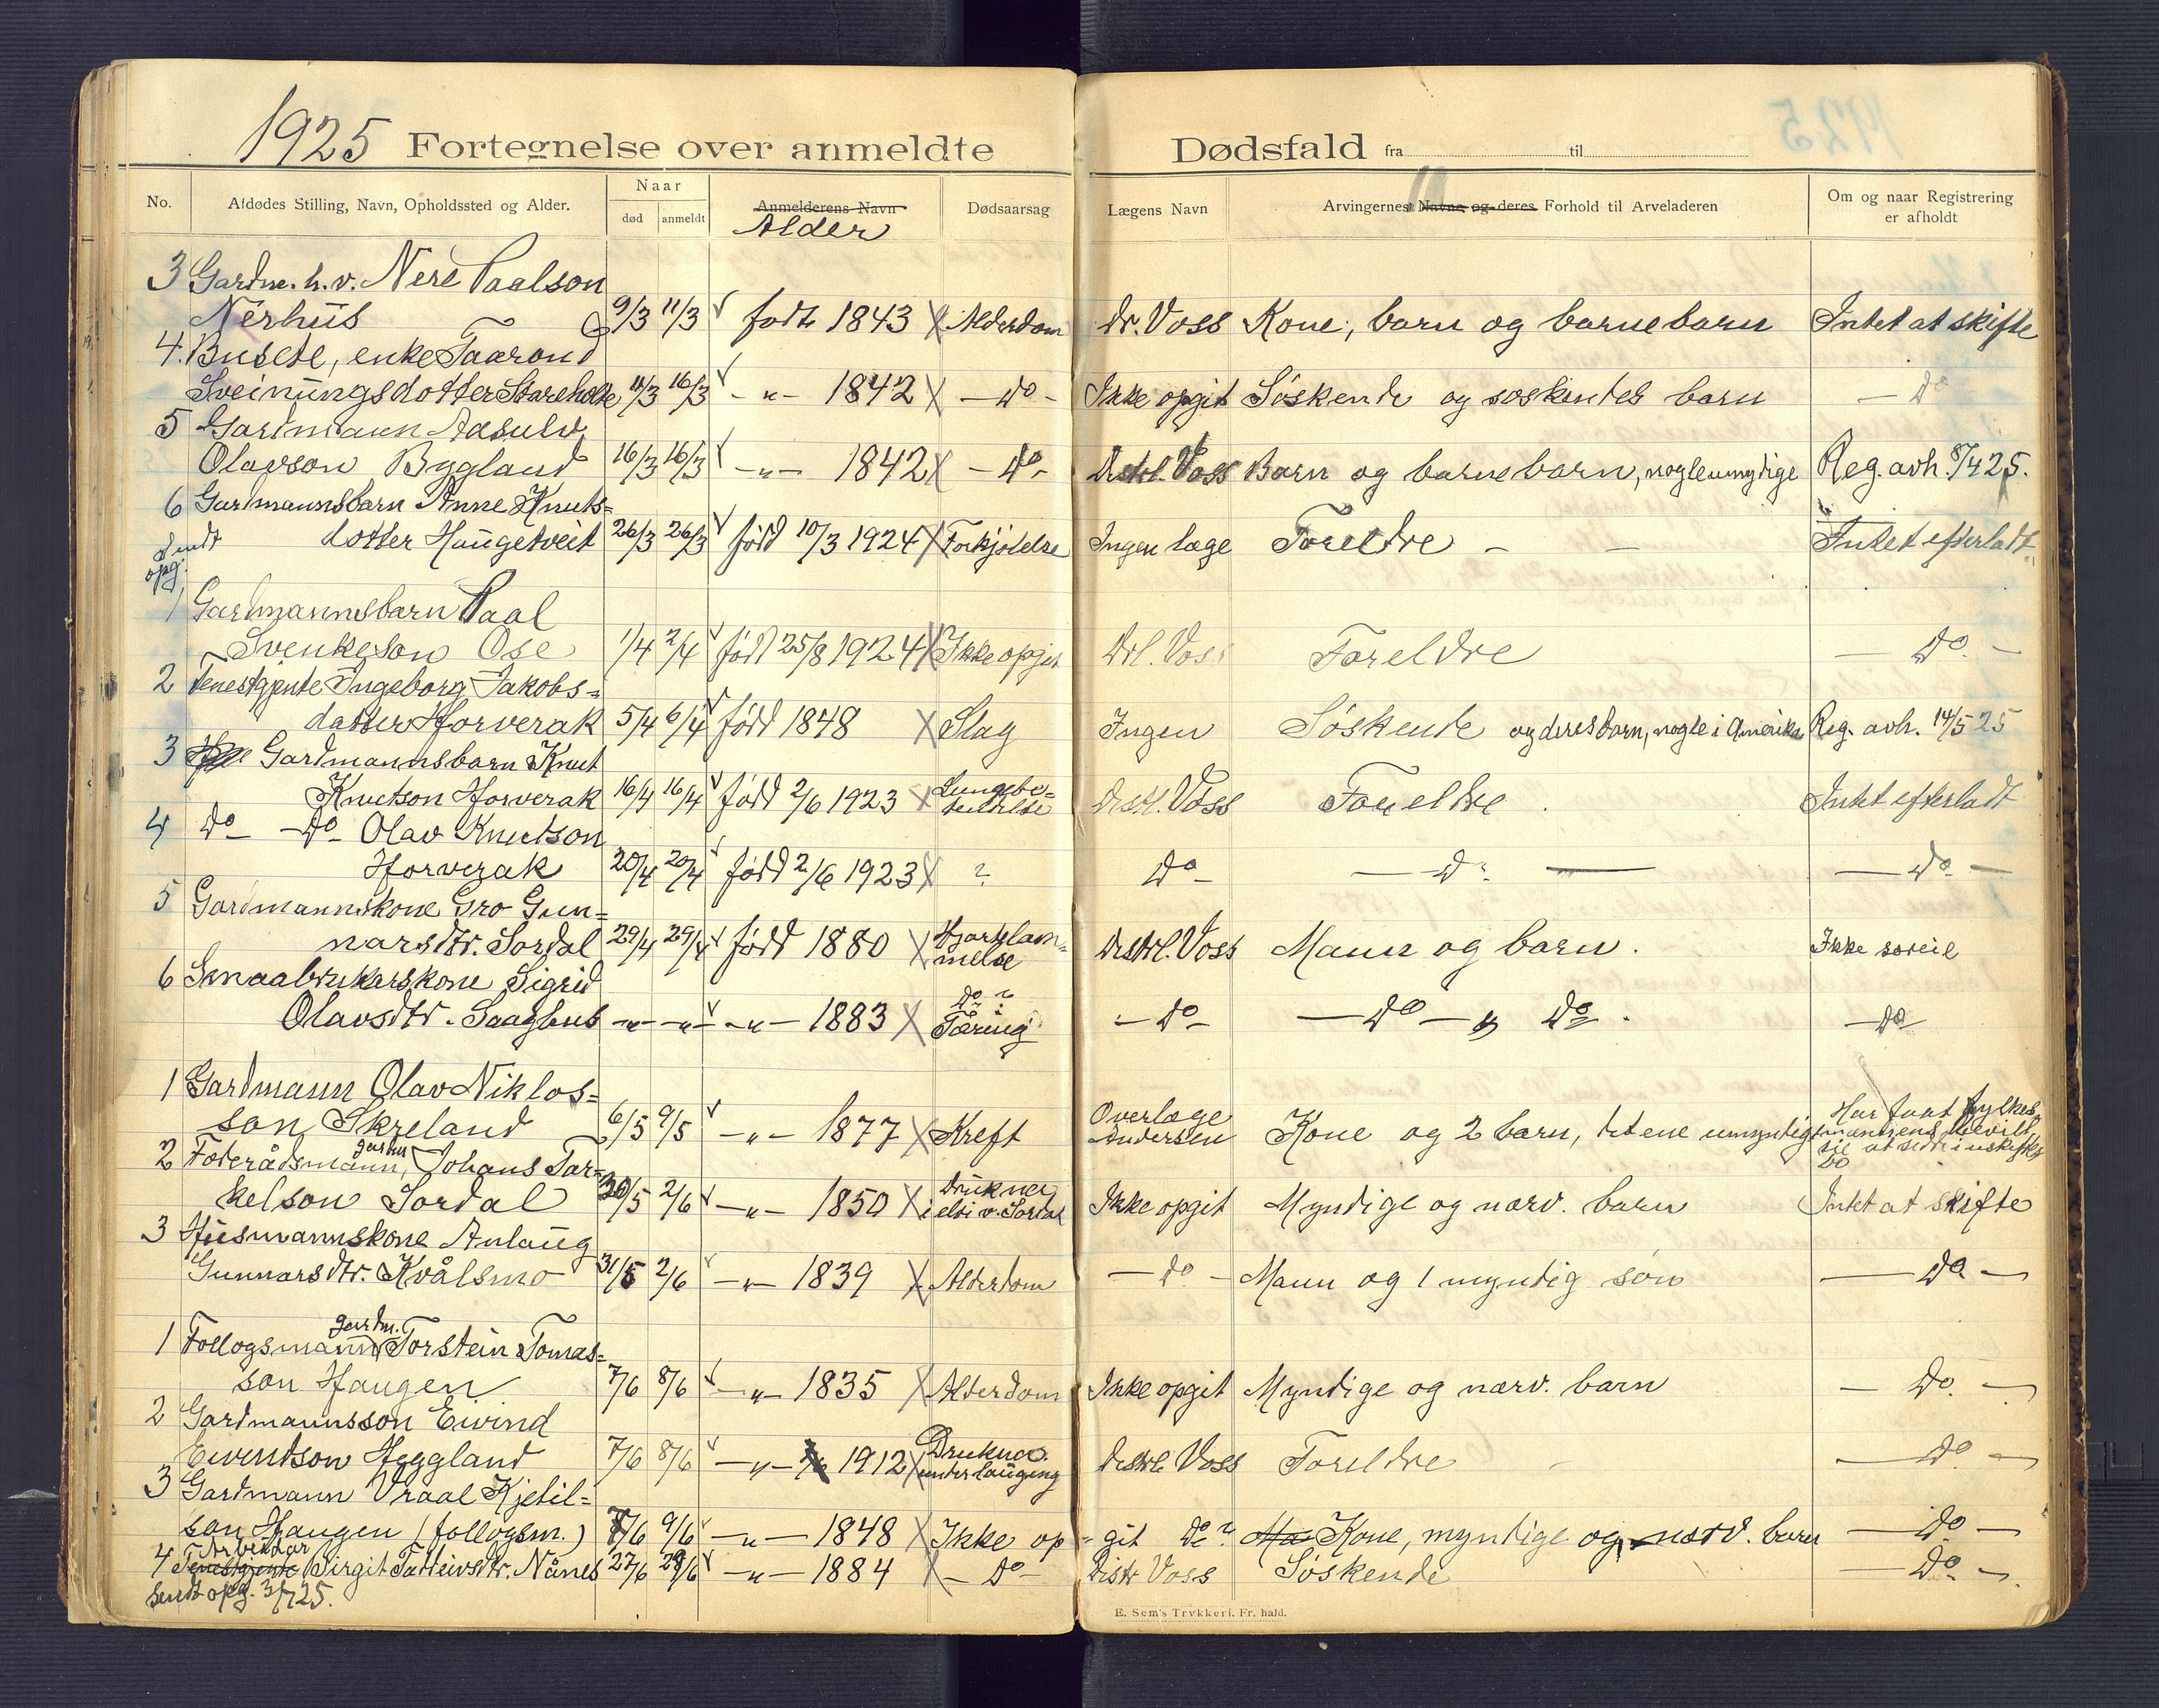 1925 Fortegnelse over anmeldte Dødsfald fra til
No. Afdødes Stilling, Navn, Opholdssted og Alder. Naar død anmeldt Anmelderens Navn Alder Dødsaarsag Lægens Navn Arvingernes Navne og deres Forhold til Arveladeren Om og naar Registrering er afholdt
3 Gardm. h. v. Nere Paalson
Nerhus 9/3 11/3 født 1843 Alderdom Dr. Voss Kone, barn og barnebarn Intet at skifte
4. Busete, enke Taarond
Sveinungsdotter 11/3 16/3 - " - 1842 - Do - Ikke opgit Søskende og søskendes barn - Do
5 Gardmann Aasulv
Olavson Bygland 16/3 16/3 - " - 1842 - Do - Distrl. Voss Barn og barnebarn, nogle umyndige Reg. avh. 8/4 25.
6 Gardmannsbarn Anne Knuts=
dotter Haugetveit 26/3 26/3 født 10/3 1924 Forkjølelse Ingen læge Foreldre - - Intet efterladt
sendt
opg.
1 Gardmannsbarn Paal
Svenkeson Ose 1/4 2/4 født 25/8 1924 Ikke opgit Drl. Voss Foreldre - Do. -
2 Tenestgjente Ingeborg Jakobs=
datter Horverak 5/4 6/4 født 1848 Slag Ingen Søskende og deres barn, nogle i Amerika Reg. avh. 14/5 25
3 Gardmannsbarn Knut
Knutson Horverak 16/4 16/4 født 2/6 1923 Lungebe=
tendelse Distrl. Voss Foreldre . Intet efterladt
4 Do - Do - Olav Knutson
Horverak 20/4 20/4 født 2/6 1923 ? Do - Do - - Do -
5 Gardmannskone Gro Gun=
narsdtr. Sordal 29/4 29/4 født 1880 Hjertelam=
melse Distrl. Voss Mann og barn. Ikke
6 Smaabrukarskone Sigrid
Olavsdtr. - " - - " - - " - 1883 Do ?
Tæring - Do - - Do - og Do - . - Do
1 Gardmann Olav Niklos=
son Skreland 6/5 9/5 - " - 1877 Kreft Overlæge
Andersen Kone og 2 barn, det ene umyndig Har faat fylkes
mannens
sit
Do
2 Foderådsmann, gardm Johans Tar=
kelson Sordal 30/5 2/6 - " - 1850 Druknet
i elvi v. Sordal Ikke opgit Myndige og nærv. barn Intet at skifte
3 Husmannskone Anlaug
Gunnarsdtr. Kvålsmo 31/5 2/6 - " - 1839 Alderdom - Do - Mann og 1 myndig søn - Do -
1 Follogsmann gardm. Torstein Tomas=
son Haugen 7/6 8/6 - " - 1835 Alderdom Ikke opgit Myndige og nærv. barn - Do. -
2 Gardmannsson Eivind
Eivindson Heggland 7/6 8/6 - " - 1912 Druknet
under lauging Distrl. Voss Foreldre - Do -
3 Gardmann Vraal Kjetil=
son Haugen (follogsm.) 8/6 9/6 - " - 1848 Ikke op=git Do ? Kone, myndige og nærv. barn - Do -
Arbeidar
4 Tenestgjente Birgit Tatteivsdtr. Nånes 27/6 29/6 - " - 1884 - Do - Distr Voss Søskende - Do -.
Sendt opg. 3/7 25.
E. Sem's Trykkeri, Fr. hald.